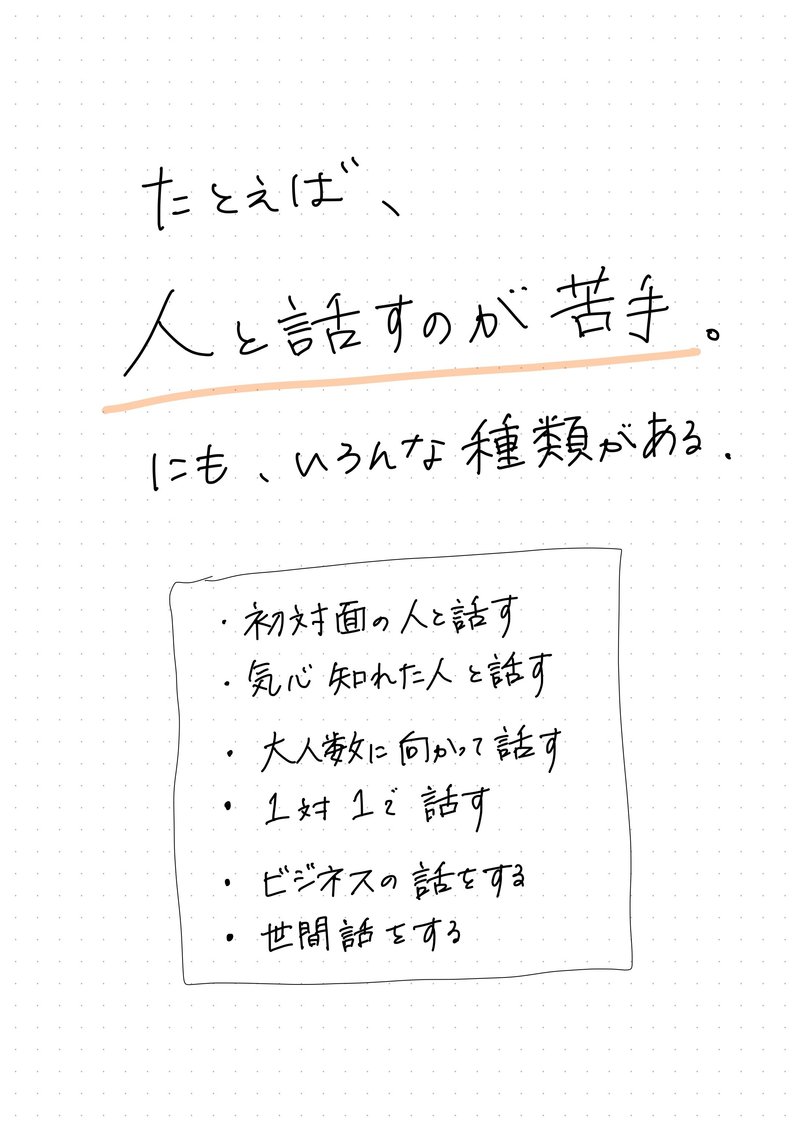 たとえば、
人と話すのが苦手。
にも、いろんな種類がある.
・初対面の人と話す
・気心知れた人と話す
・大人数に向かって話す
・1対1で話す
・ビジネスの話をする
・世間話をする